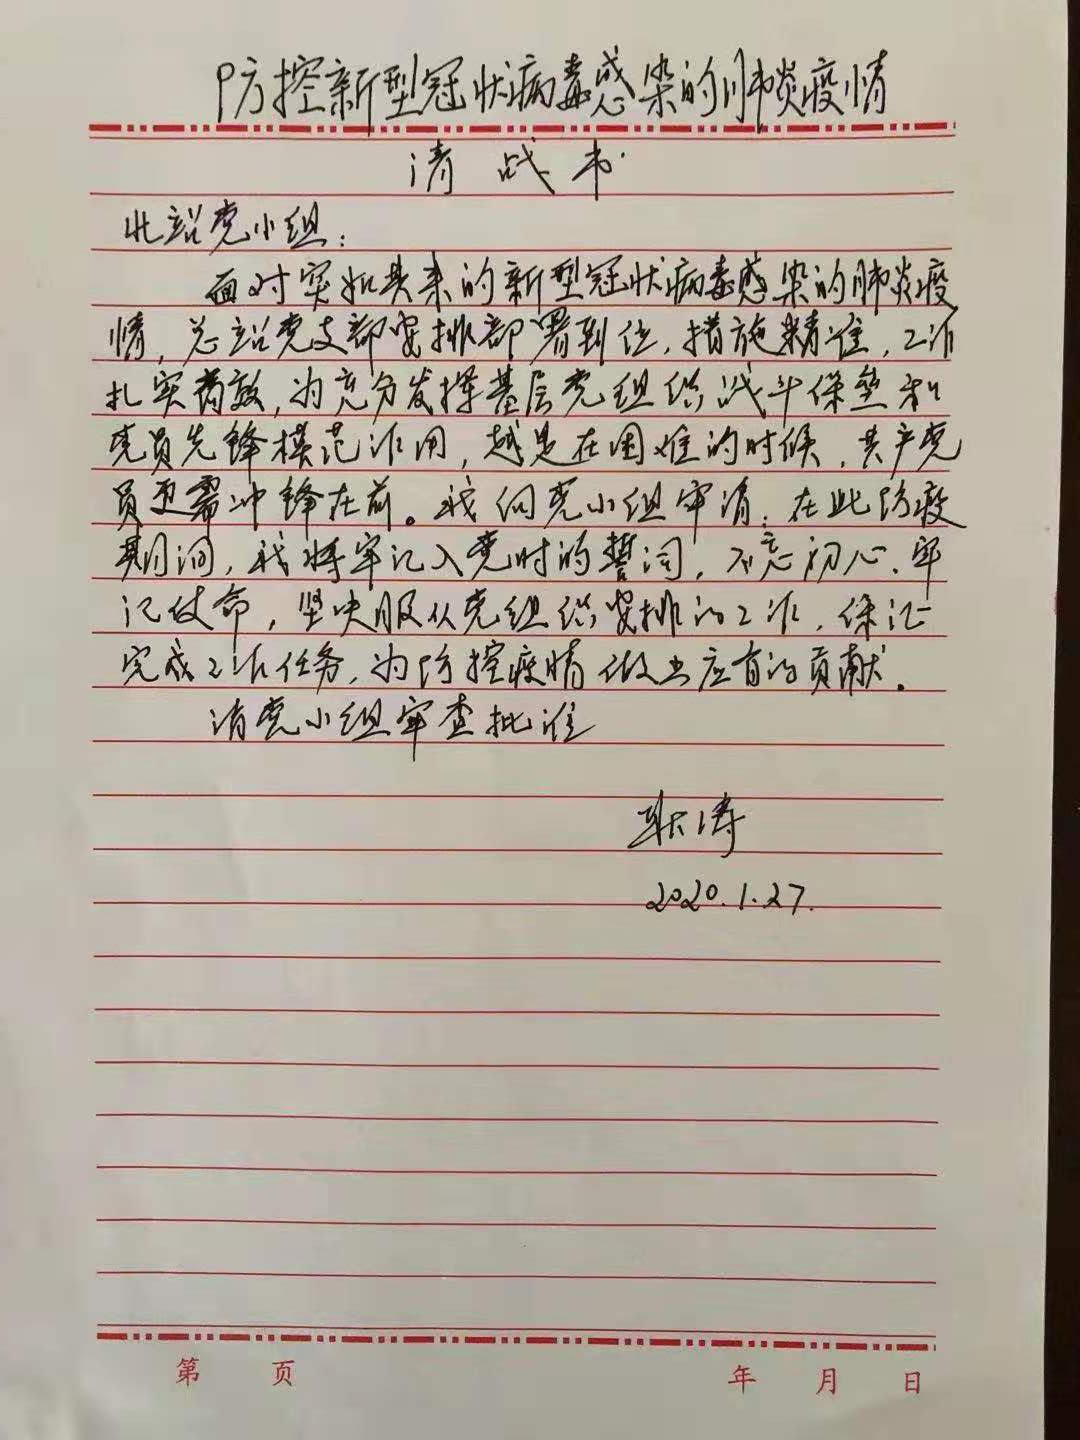 防控新型冠状病毒感染的肺炎疫情
请战书
北站党小组：
面对突如其来的新型冠状病毒感染的肺炎疫
情，总站党支部安排部署到位，措施精准，工作
扎实有效，为充分发挥基层党组织战斗保垒和
党员先锋模范作用，越是在困难的时候，共产党
员更需冲锋在前。我向党小组审请：在此防疫
期间，我将牢记入党时的誓词，不忘初心、牢
记使命，坚决服从党组织安排的工作，保证
完成工作任务，为防控疫情做出应有的贡献。
请党小组审查批准
耿涛
2020.1.27.
第 页 年 月 日